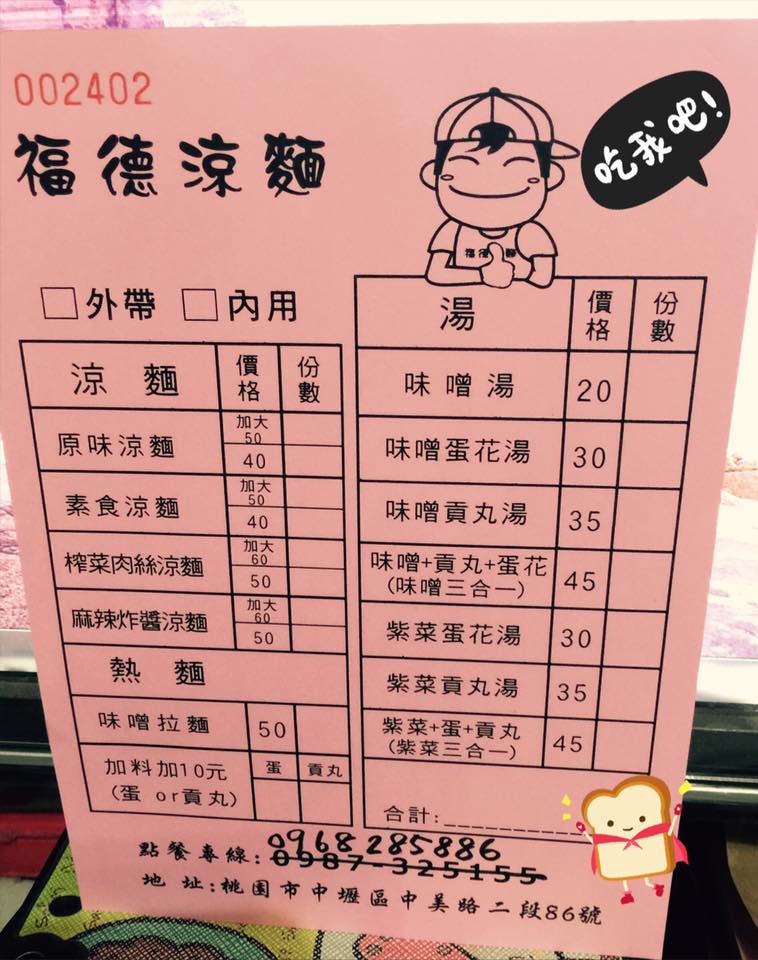 002402
福德涼麵
吃我吧!
福德麵
□外帶 □內用
涼麵 價格 份數
原味涼麵 加大50
40
素食涼麵 加大50
40
榨菜肉絲涼麵 加大60
50
麻辣炸醬涼麵 加大60
50
熱麵
味噌拉麵 50
加料加10元 蛋 貢丸
(蛋 or貢丸)
湯 價格 份數
味噌湯 20
味噌蛋花湯 30
味噌貢丸湯 35
味噌+貢丸+蛋花 45
(味噌三合一)
紫菜蛋花湯 30
紫菜貢丸湯 35
紫菜+蛋+貢丸 45
(紫菜三合一)
合計:
0968285886
點餐專線:0987-325155
地址:桃園市中壢區中美路二段86號